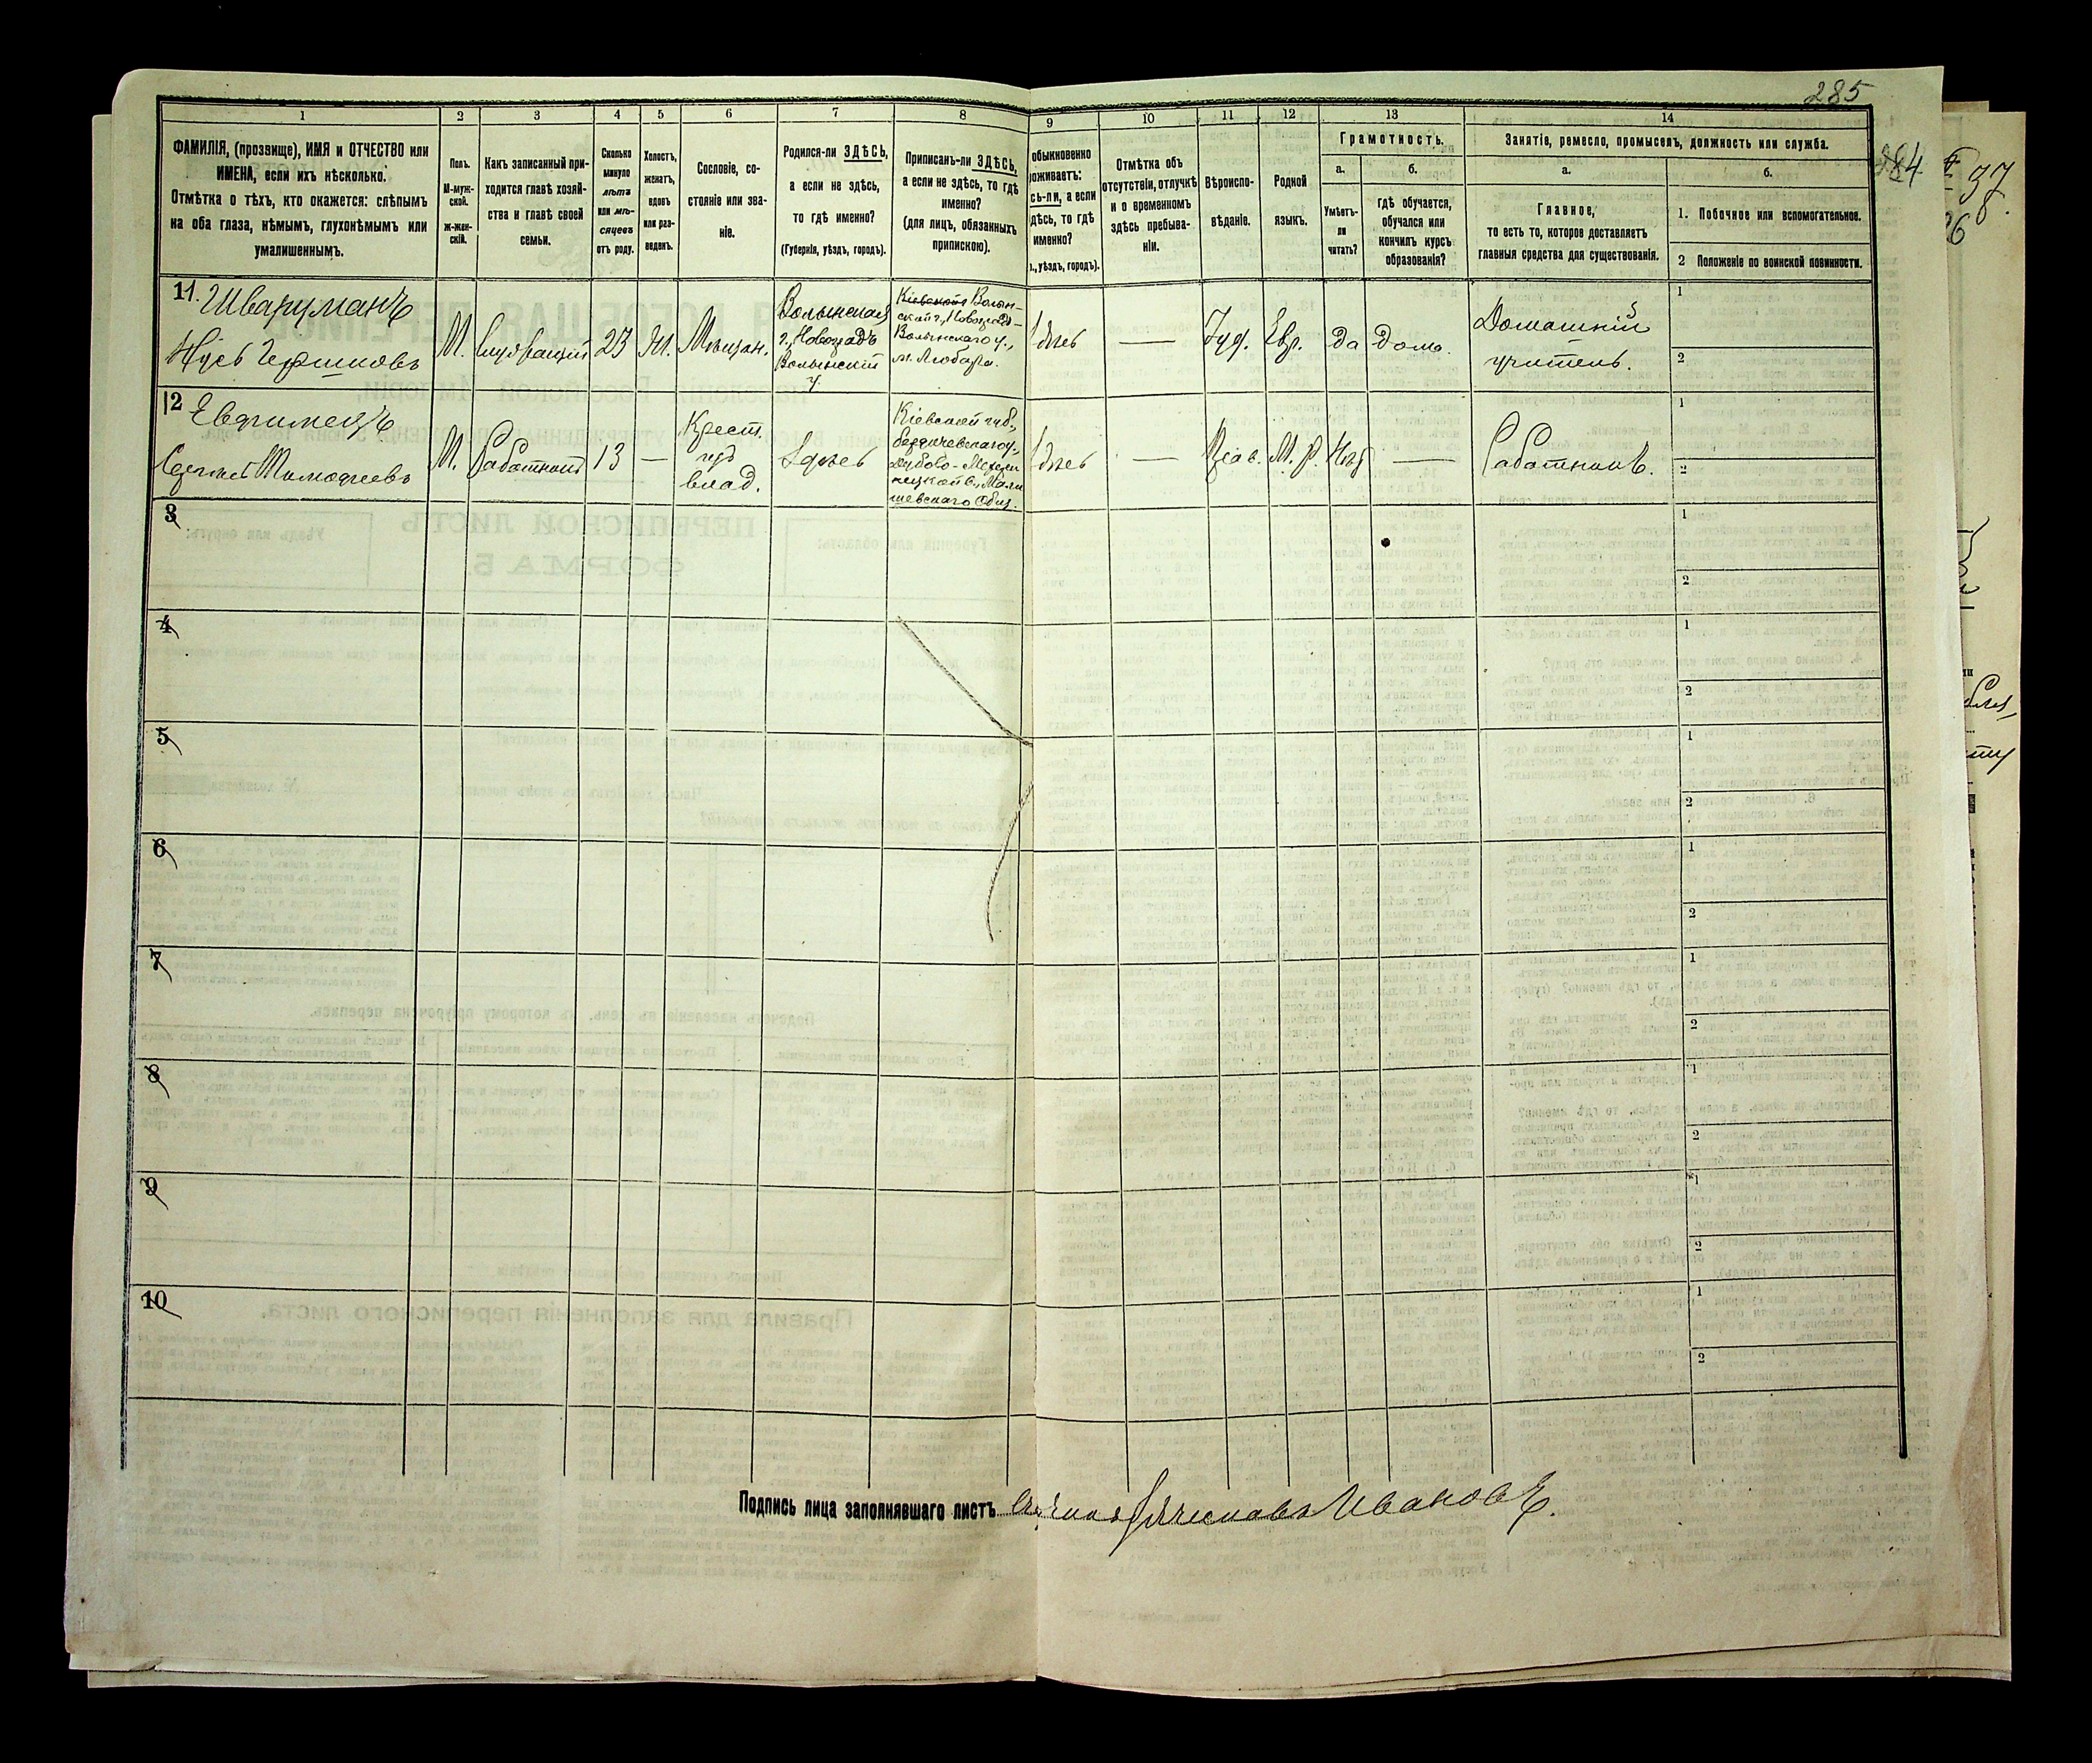 285
284
37
1
2
3
4
5
6
7
8
9
10
11
12
13
14
ФАМИЛІЯ, (прозвище), ИМЯ и ОТЧЕСТВО или
ИМЕНА, если ихъ нѣсколько.
Отмѣтка о тѣхъ, кто окажется: слѣпымъ
на оба глаза, нѣмымъ, глухонѣмымъ или
умалишеннымъ.
Полъ.
М-муж-
ской.
Ж-жен-
скій.
Какъ записанный при-
ходится главѣ хозяй-
ства и главѣ своей
семьи.
Сколько
минуло
лѣтъ
или мѣ-
сяцевъ
отъ роду.
Холостъ,
женатъ,
вдовъ
или раз-
веденъ.
Сословіе, со-
стояніе или зва-
ніе.
Родился-ли ЗДѢСЬ,
а если не здѣсь,
то гдѣ именно?
(Губернія, уѣздъ, городъ).
Приписанъ-ли ЗДѢСЬ,
а если не здѣсь, то гдѣ
именно?
(для лицъ, обязанныхъ
припискою).
обыкновенно
оживаетъ:
сь-ли, а если
дѣсь, то гдѣ
именно?
уѣздъ, городъ).
Отмѣтка объ
отсутствіи, отлучкѣ
и о временномъ
здѣсь пребыва-
ніи.
Вѣроиспо-
вѣданіе.
Родной
языкъ.
Грамотность.
а.
б.
Умѣетъ-
ли
читать?
гдѣ обучается,
обучался или
кончилъ курсъ
образованія?
Занятіе, ремесло, промыселъ, должность или служба.
а.
б.
Главное,
то есть то, которое доставляетъ
главныя средства для существованія.
1. Побочное или вспомогательное.
2 Положеніе по воинской повинности.
11. Шварцманъ
Нусь Гершковъ
М.
Служащій
23
Ж.
Мѣщан.
Волынская
г., Новоградъ
Волынскій
у.
Кіевской Волын-
ской г., Новоград-
Волынскаго у.,
м. Любара.
Здѣсь
—
Іуд.
Евр.
да
дома.
Домашній
учитель.
1
2
12 Ефимецъ
Сергѣй Тимофеевъ
М.
Работникъ
13
—
Крест.
изъ
влад.
Здѣсь
Кіевской губ.,
Бердичевскаго у.,
Здѣсь
—
Прав.
М. Р.
Нѣтъ
—
Работникъ.
1
2
3
1
2
4
1
2
5
1
2
6
1
2
7
1
2
8
1
2
9
1
2
10
1
2
Подпись лица заполнявшаго листъ
Ивановъ.